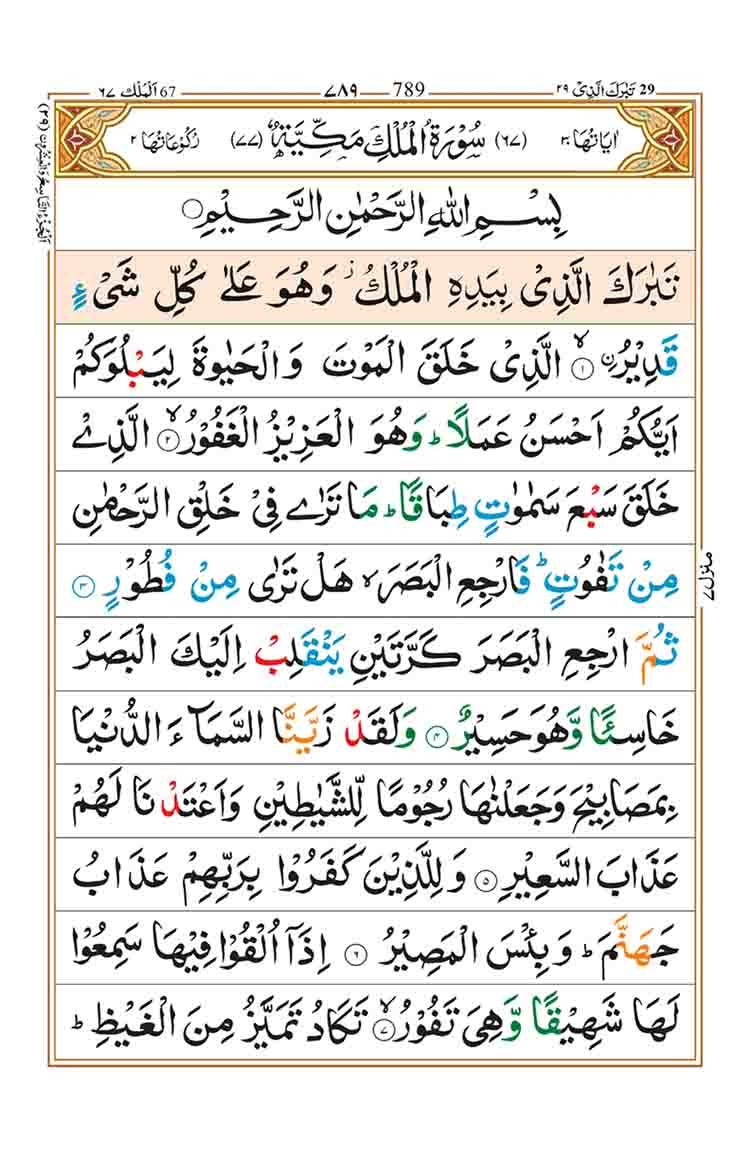 29 تَبٰرَكَ الَّذِیْ ۲۹ 789 ۷۸۹ 67 اَلْمُلْك ۶۷
اٰیَاتُهَا ۳۰ (۶۷) سُوْرَةُ الْمُلْكِ مَكِّیَّةٌ (۷۷) رُكُوْعَاتُهَا ۲
بِسْمِ اللّٰهِ الرَّحْمٰنِ الرَّحِیْمِ ۝
تَبٰرَكَ الَّذِیْ بِیَدِهِ الْمُلْكُ ز وَهُوَ عَلٰی كُلِّ شَیْءٍ
قَدِیْرُ ۨ ۝۱ۙ الَّذِیْ خَلَقَ الْمَوْتَ وَالْحَیٰوةَ لِیَبْلُوَكُمْ
اَیُّكُمْ اَحْسَنُ عَمَلًا ؕ وَهُوَ الْعَزِیْزُ الْغَفُوْرُ ۝۲ۙ الَّذِیْ
خَلَقَ سَبْعَ سَمٰوٰتٍ طِبَاقًا ؕ مَا تَرٰی فِیْ خَلْقِ الرَّحْمٰنِ
مِنْ تَفٰوُتٍ ؕ فَارْجِعِ الْبَصَرَ ۙ هَلْ تَرٰی مِنْ فُطُوْرٍ ۝۳
ثُمَّ ارْجِعِ الْبَصَرَ كَرَّتَیْنِ یَنْقَلِبْ اِلَیْكَ الْبَصَرُ
خَاسِئًا وَّهُوَ حَسِیْرٌ ۝۴ وَلَقَدْ زَیَّنَّا السَّمَآءَ الدُّنْیَا
بِمَصَابِیْحَ وَجَعَلْنٰهَا رُجُوْمًا لِّلشَّیٰطِیْنِ وَاَعْتَدْنَا لَهُمْ
عَذَابَ السَّعِیْرِ ۝۵ وَلِلَّذِیْنَ كَفَرُوْا بِرَبِّهِمْ عَذَابُ
جَهَنَّمَ ؕ وَبِئْسَ الْمَصِیْرُ ۝۶ اِذَاۤ اُلْقُوْا فِیْهَا سَمِعُوْا
لَهَا شَهِیْقًا وَّهِیَ تَفُوْرُ ۝۷ۙ تَكَادُ تَمَیَّزُ مِنَ الْغَیْظِ ؕ
منزل ۷
اَلْجُزْءُ التَّاسِعُ وَالْعِشْرُوْنَ (۲۹)